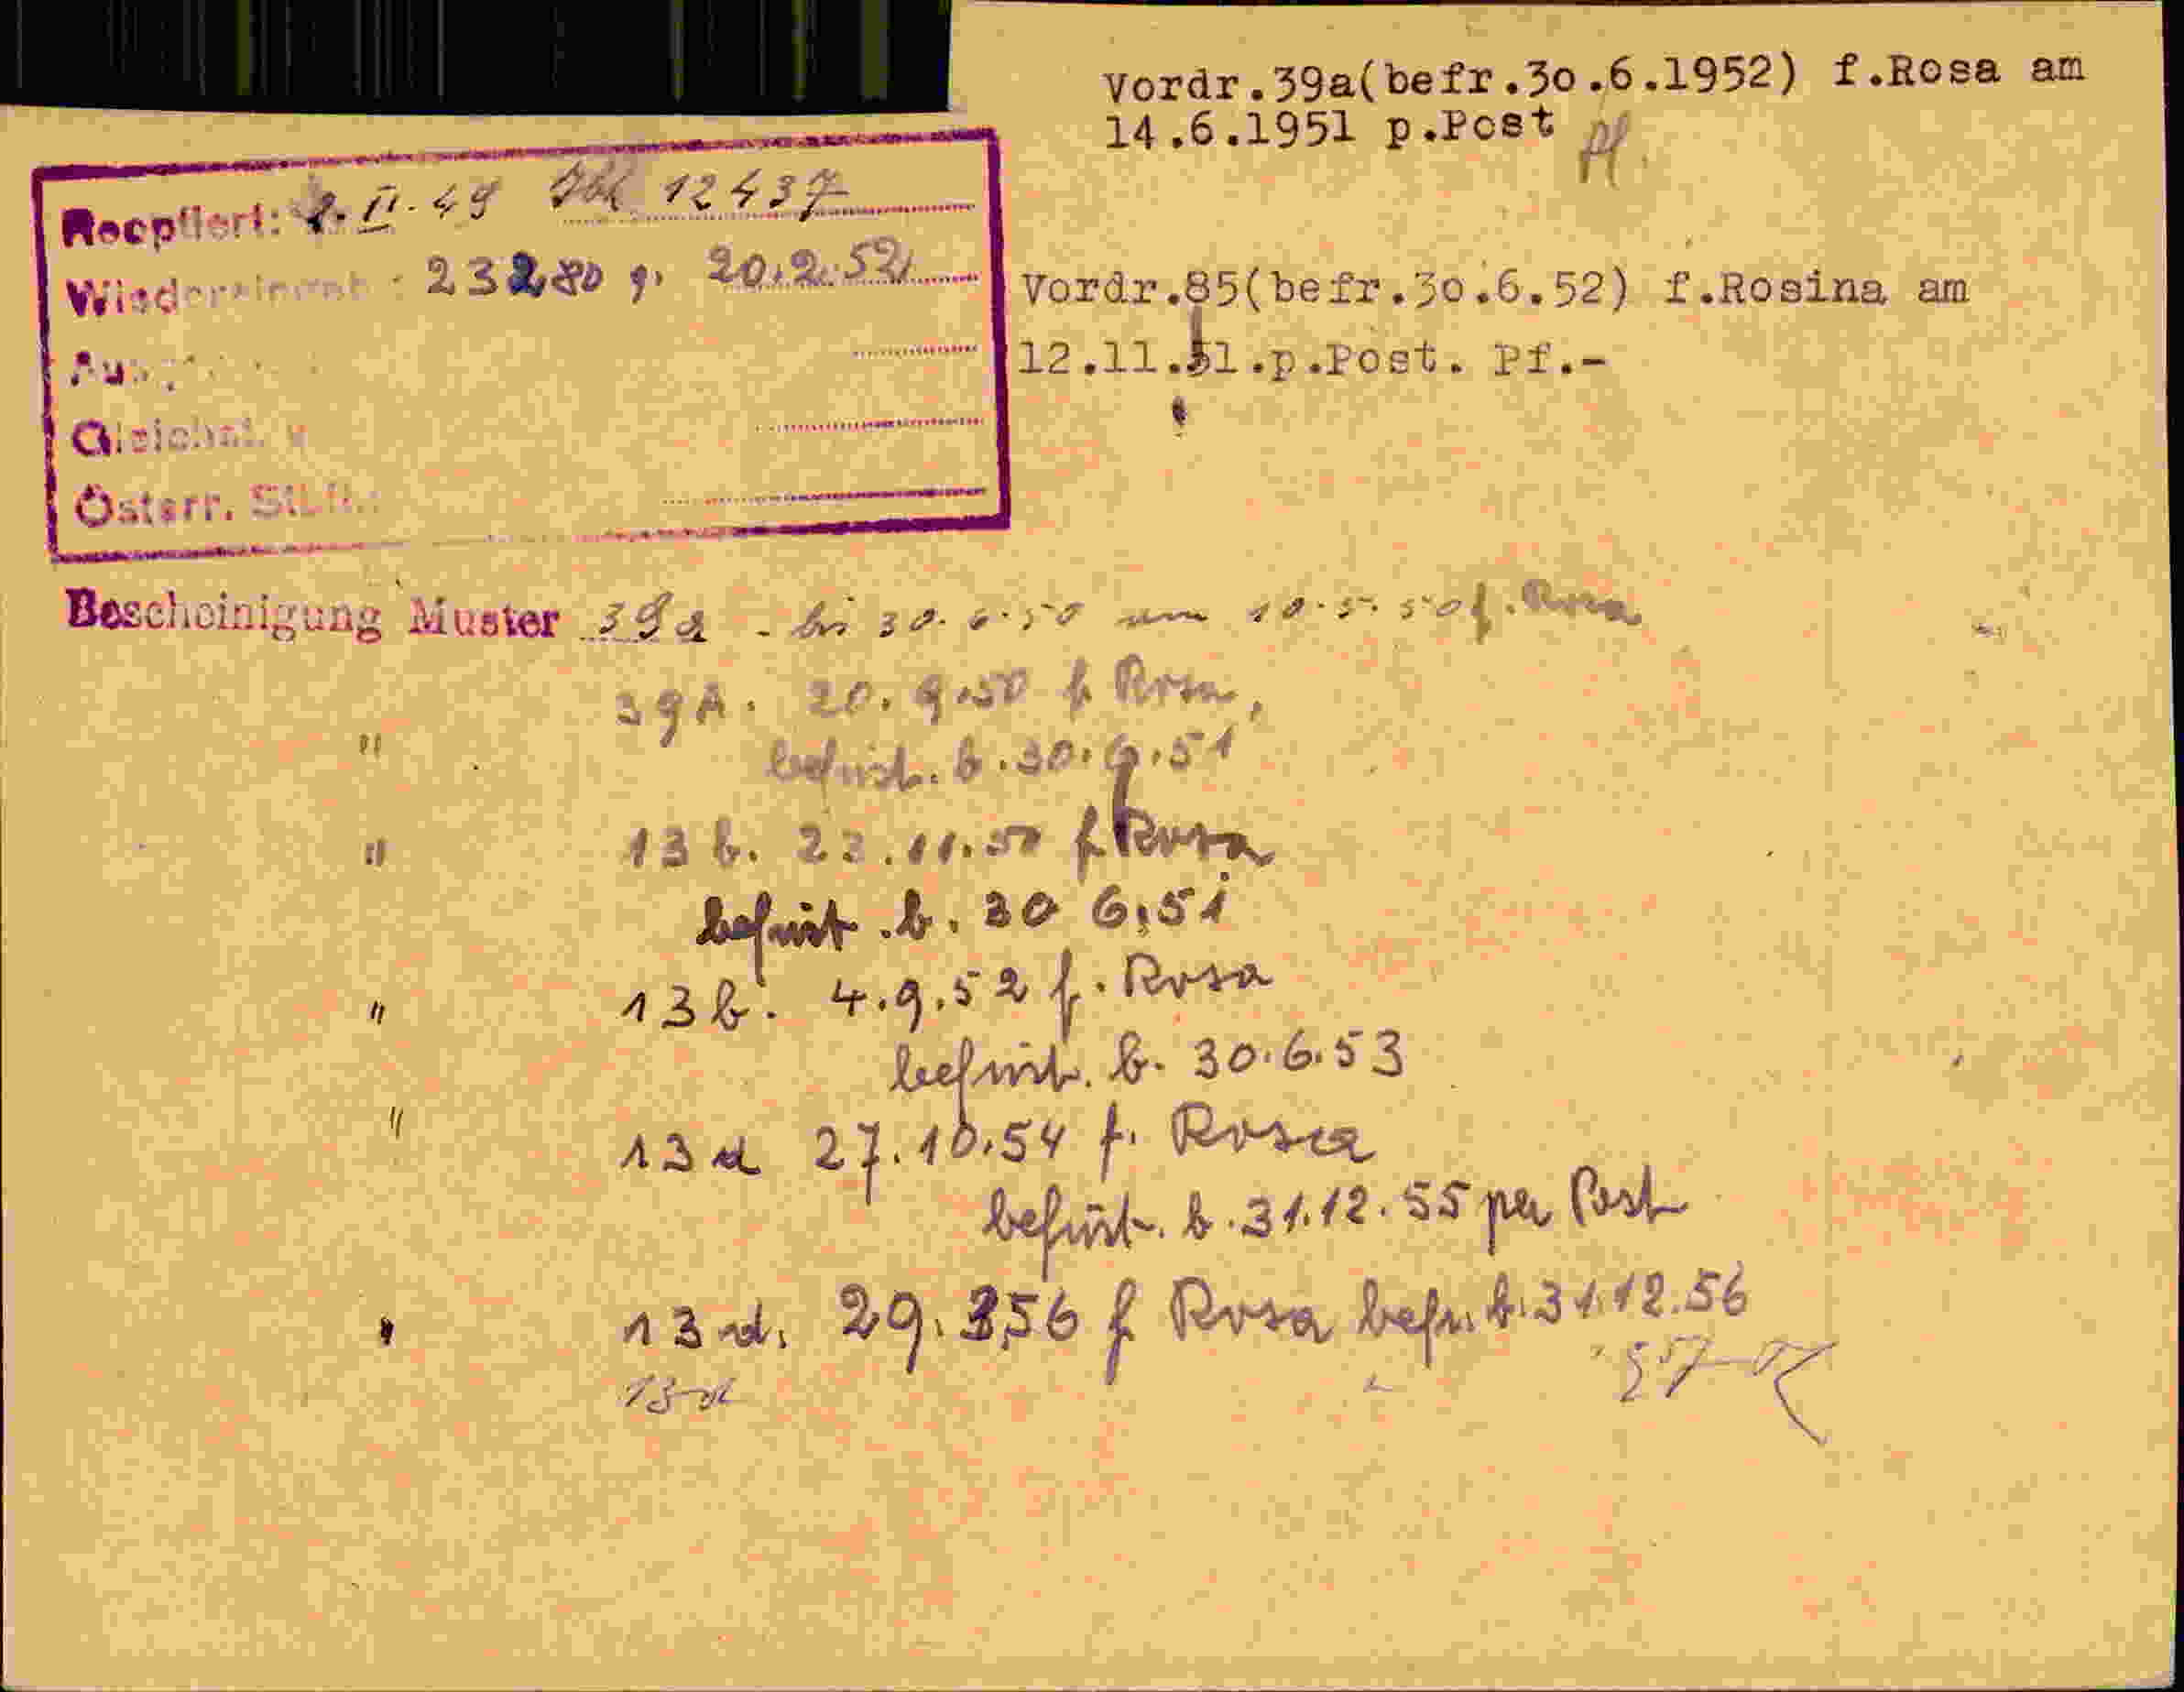 Vordr.39a(befr.30.6.1952) f.Rosa am
14.6.1951 p.Post Pf.
Reoptiert: 2.II.49 12437
23280 g. 20.2.52
Vordr.85(befr.30.6.52) f.Rosina am
12.11.51.p.Post. Pf.-
Österr.
Bescheinigung Muster 39a - bis 30.6.50 am 10.5.50 f. Rosa
" 39A. 20.9.50 f Rosa,
befrist. b. 30.6.51
" 13 b. 22.11.50 f. Rosa
befrist. b. 30 6.51
" 13 b. 4.9.52 f. Rosa
befrist. b. 30.6.53
" 13 d 27.10.54 f. Rosa
befrist. b. 31.12.55 per Post
" 13 d. 29.3.56 f Rosa befr. b. 31.12.56
13 d 57